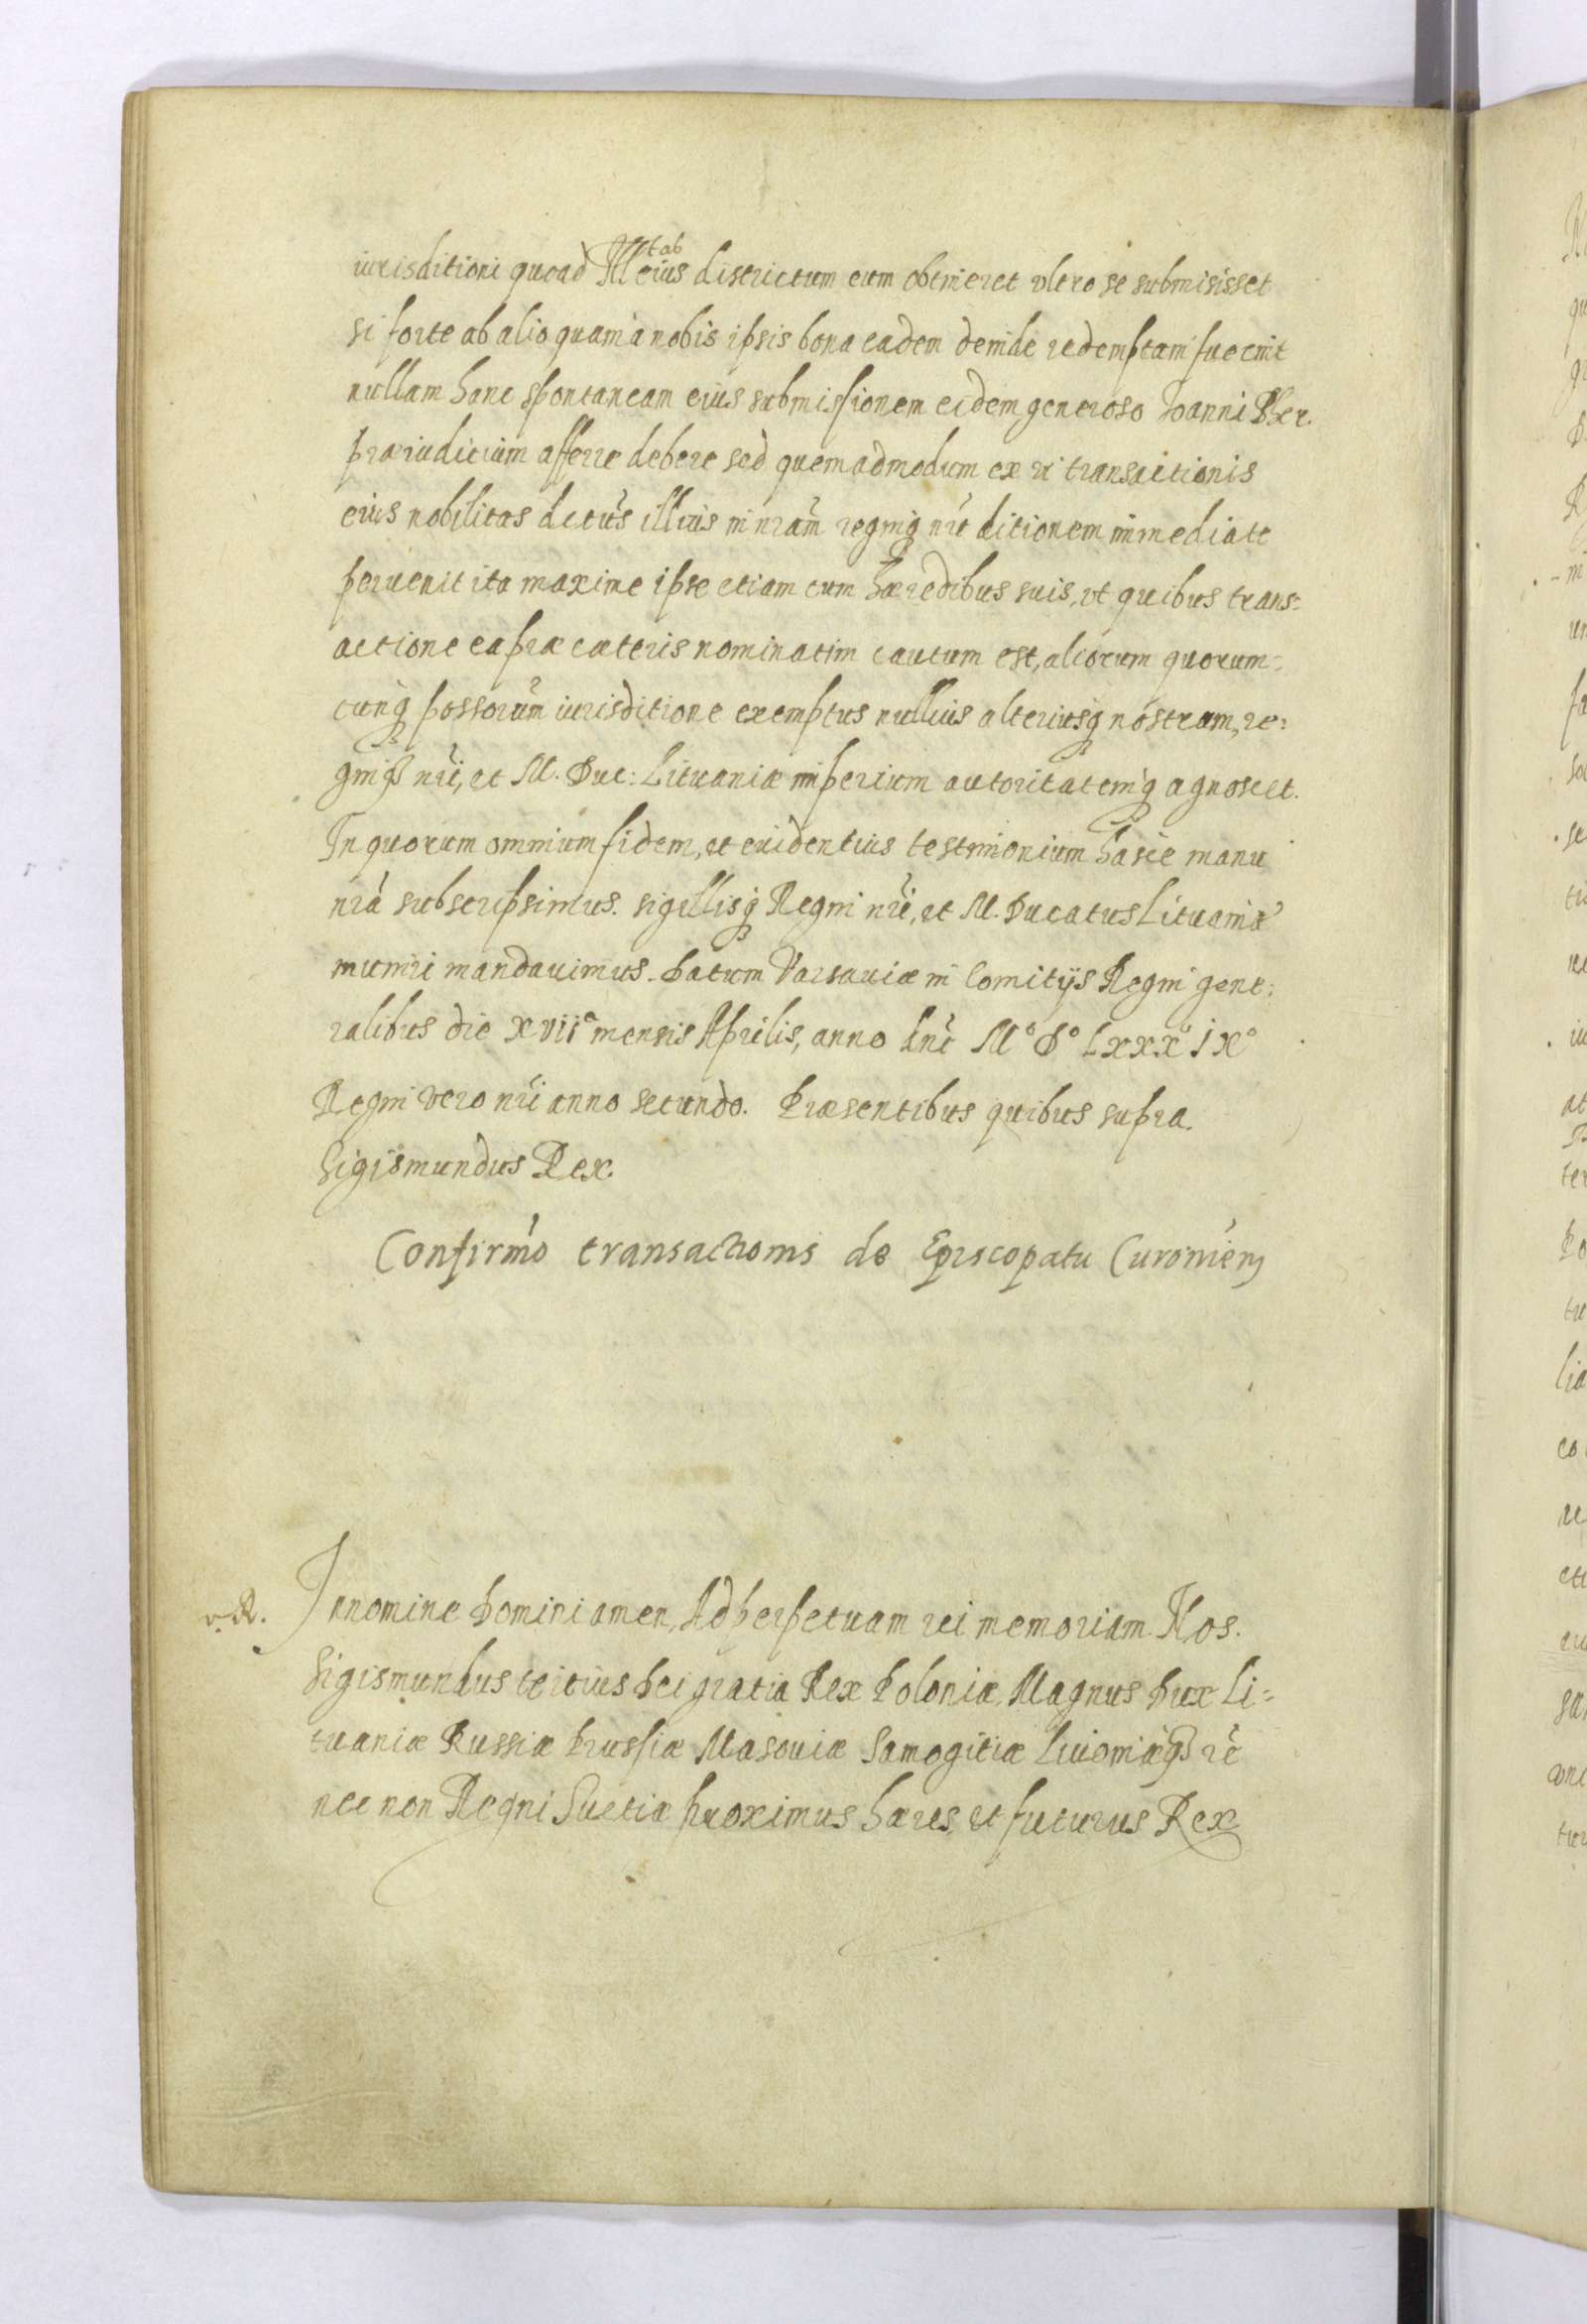 iurisditioni quoad Mtab eius districtum eum obtineret vltro se submisisset
si forte ab alio quam a nobis ipsis bona eadem deinde redemptam fuerint
nullam hanc spontaneam eius submissionem eidem generoso Ioanni Bher.
præiudicium afferre debere sed quemadmodum ex vi transactionis
eius nobilitas dctus illius in nram regniq nri ditionem immediate
peruenit ita maxime ipse etiam cum hæredibus suis, vt quibus trans=
actione ea præ cæteris nominatim cautum est, aliorum quorum=
cunq possorum iurisditione exemptus nullius alteriusq nostram, re=
gniq nri, et M. Duc: Lituaniæ imperium autoritatemq agnoscet.
In quorum omnium fidem, et euidentius testimonium hasce manu
nra subscripsimus. sigillisq Regni nri, et M. Ducatus Lituaniæ
muniri mandauimus. Datum Varsauiæ in Comitijs Regni gene=
ralibus die XVIIa mensis Aprilis, anno Dni Mo Do Lxxxo ixo
Regni vero nri anno secundo. Præsentibus quibus supra.
Sigismundus Rex.
Confirmo transactionis de Episcopatu Curonien
In nomine Domini amen, Ad perpetuam rei memoriam. Nos.
Sigismundus tertius Dei gratia Rex Poloniæ, Magnus Dux Li=
tuaniæ Russiæ Prussiæ Masouiæ Samogitiæ Liuoniæq re
nec non Regni Suetiæ proximus hæres, et futurus Rex